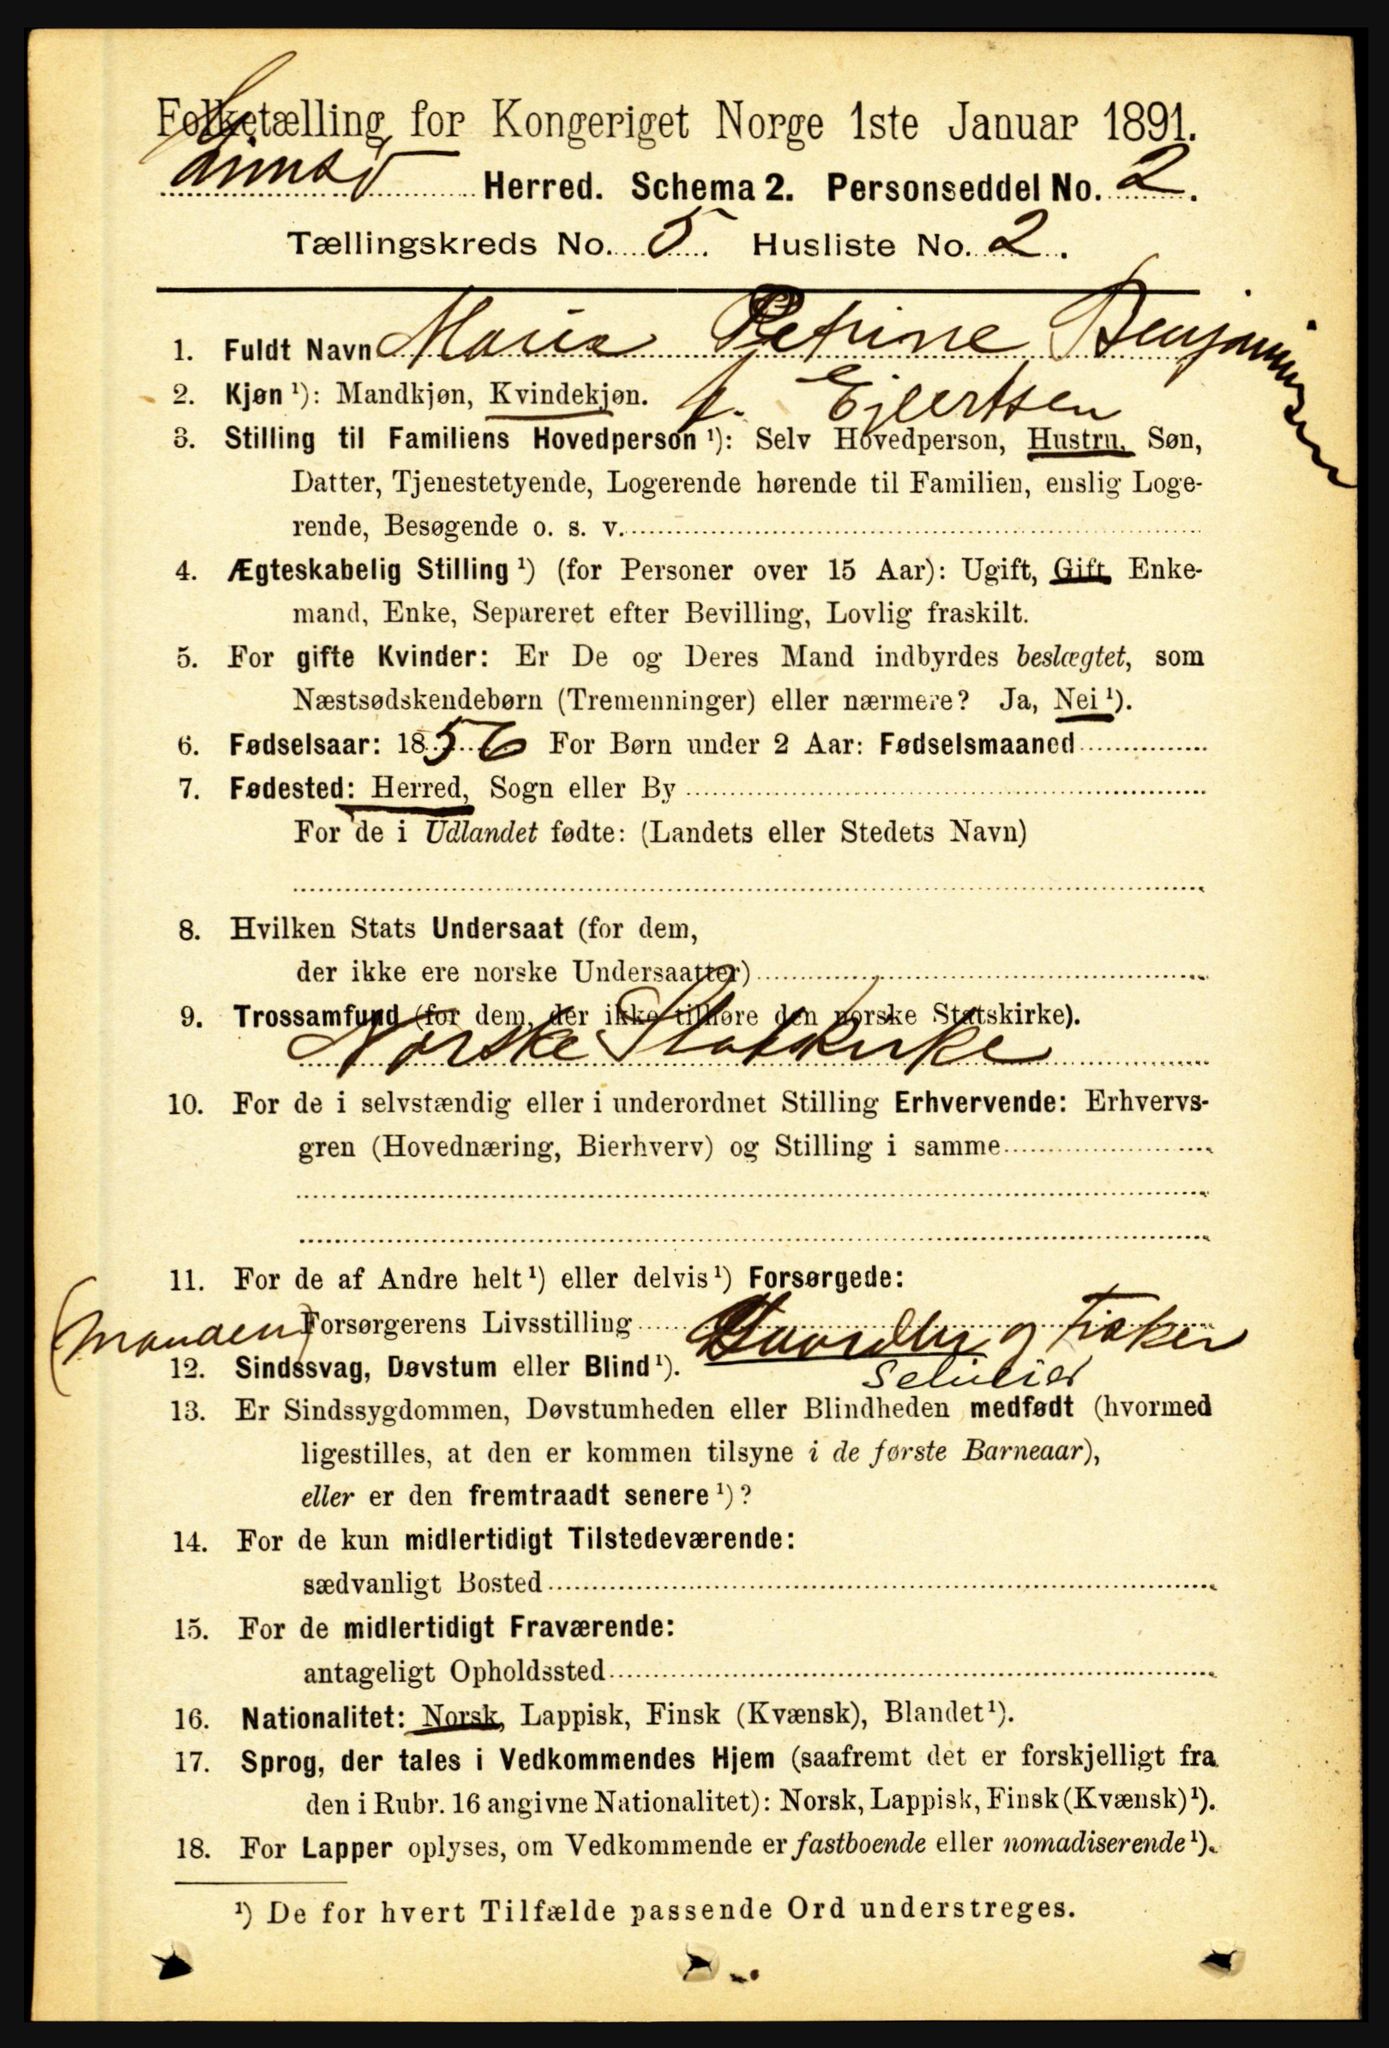 Folketælling for Kongeriget Norge 1ste Januar 1891.
Gimsø Herred. Schema 2. Personseddel No. 2.
Tællingskreds No. 5. Husliste No. 2.
1. Fuldt Navn Maria Petrine Benjaminsen
f. Ejlertsen
2. Kjøn ¹): Mandkjøn, Kvindekjøn.
3. Stilling til Familiens Hovedperson ¹): Selv Hovedperson, Hustru, Søn,
Datter, Tjenestetyende, Logerende hørende til Familien, enslig Loge-
rende, Besøgende o. s. v.
4. Ægteskabelig Stilling ¹) (for Personer over 15 Aar): Ugift, Gift, Enke-
mand, Enke, Separeret efter Bevilling, Lovlig fraskilt.
5. For gifte Kvinder: Er De og Deres Mand indbyrdes beslægtet, som
Næstsødskendebørn (Tremenninger) eller nærmere? Ja, Nei ¹).
6. Fødselsaar: 1856 For Børn under 2 Aar: Fødselsmaaned
7. Fødested: Herred, Sogn eller By
For de i Udlandet fødte: (Landets eller Stedets Navn)
8. Hvilken Stats Undersaat (for dem,
der ikke ere norske Undersaatter)
9. Trossamfund (for dem, der ikke tilhøre den norske Statskirke).
Norske Statskirke
10. For de i selvstændig eller i underordnet Stilling Erhvervende: Erhvervs-
gren (Hovednæring, Bierhverv) og Stilling i samme
11. For de af Andre helt ¹) eller delvis ¹) Forsørgede:
(Manden) Forsørgerens Livsstilling Gaardbr og Fisker
Selveier
12. Sindssvag, Døvstum eller Blind ¹).
13. Er Sindssygdommen, Døvstumheden eller Blindheden medfødt (hvormed
ligestilles, at den er kommen tilsyne i de første Barneaar),
eller er den fremtraadt senere ¹)?
14. For de kun midlertidigt Tilstedeværende:
sædvanligt Bosted
15. For de midlertidigt Fraværende:
antageligt Opholdssted
16. Nationalitet: Norsk, Lappisk, Finsk (Kvænsk), Blandet ¹).
17. Sprog, der tales i Vedkommendes Hjem (saafremt det er forskjelligt fra
den i Rubr. 16 angivne Nationalitet): Norsk, Lappisk, Finsk (Kvænsk) ¹).
18. For Lapper oplyses, om Vedkommende er fastboende eller nomadiserende ¹).
¹) De for hvert Tilfælde passende Ord understreges.